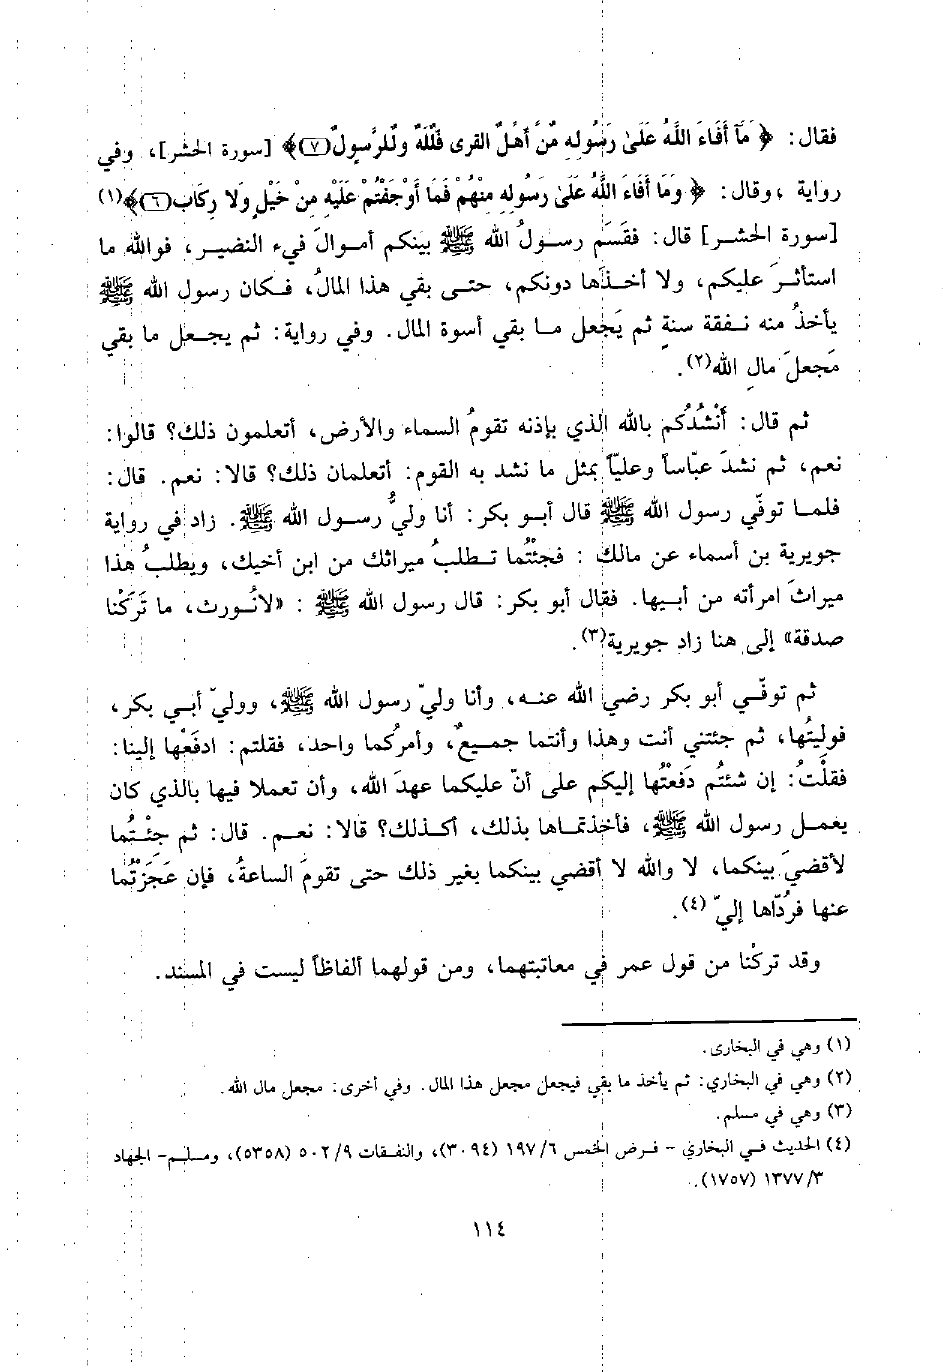 فقال: ﴿ مَّا أَفَاءَ اللَّهُ عَلَىٰ رَسُولِهِ مِنْ أَهْلِ القرى فَلِلَّهِ وَلِلرَّسُولِ (٧)﴾ [سورة الحشر]، وفي
رواية ، وقال: ﴿ وَمَا أَفَاءَ اللَّهُ عَلَىٰ رَسُولِهِ مِنْهُمْ فَمَا أَوْجَفْتُمْ عَلَيْهِ مِنْ خَيْلٍ وَلَا رِكَابٍ (٦)﴾(١)
[سورة الحشر] قال: فقَسَم رسولُ الله ﷺ بينكم أموالَ فيء النضير، فوالله ما
استأثرَ عليكم، ولا أخذها دونكم، حتى بقي هذا المالُ، فكان رسول الله ﷺ
يأخذُ منه نفقة سنةٍ ثم يَجعل ما بقي أسوة المال. وفي رواية: ثم يجعل ما بقي
مَجعلَ مالِ الله(٢).
ثم قال: أَنْشُدُكم بالله الذي بإذنه تقومُ السماء والأرض، أتعلمون ذلك؟ قالوا:
نعم، ثم نشدَ عبّاساً وعليّاً بمثل ما نشد به القوم: أتعلمان ذلك؟ قالا: نعم. قال:
فلما توفّي رسول الله ﷺ قال أبو بكر: أنا وليُّ رسول الله ﷺ. زاد في رواية
جويرية بن أسماء عن مالك : فجئتُما تطلبُ ميراثك من ابن أخيك، ويطلبُ هذا
ميراثَ امرأته من أبيها. فقال أبو بكر: قال رسول الله ﷺ : «لانُورث، ما تَرَكْنا
صدقة» إلى هنا زاد جويرية(٣).
ثم توفّي أبو بكر رضي الله عنه، وأنا وليّ رسول الله ﷺ، ووليّ أبي بكر،
فوليتُها، ثم جئتني أنت وهذا وأنتما جميعٌ، وأمركُما واحد، فقلتم: ادفَعْها إلينا:
فقلْتُ: إن شئتُم دَفعْتُها إليكم على أنّ عليكما عهدَ الله، وأن تعملا فيها بالذي كان
يعمل رسول الله ﷺ، فأخذتماها بذلك، أكذلك؟ قالا: نعم. قال: ثم جئْتُما
لأقضيَ بينكما، لا والله لا أقضي بينكما بغير ذلك حتى تقومَ الساعةُ، فإن عَجَزْتُما
عنها فرُدّاها إليّ (٤).
وقد تركْنا من قول عمر في معاتبتهما، ومن قولهما ألفاظاً ليست في المسند.
(١) وهي في البخارى.
(٢) وهي في البخاري: ثم يأخذ ما بقي فيجعل مجعل هذا المال. وفي أخرى: مجعل مال الله.
(٣) وهي في مسلم.
(٤) الحديث في البخاري - فرض الخمس ٦/ ١٩٧ (٣٠٩٤)، والنفقات ٩/ ٥٠٢ (٥٣٥٨)، ومسلم- الجهاد
٣/ ١٣٧٧ (١٧٥٧).
١١٤